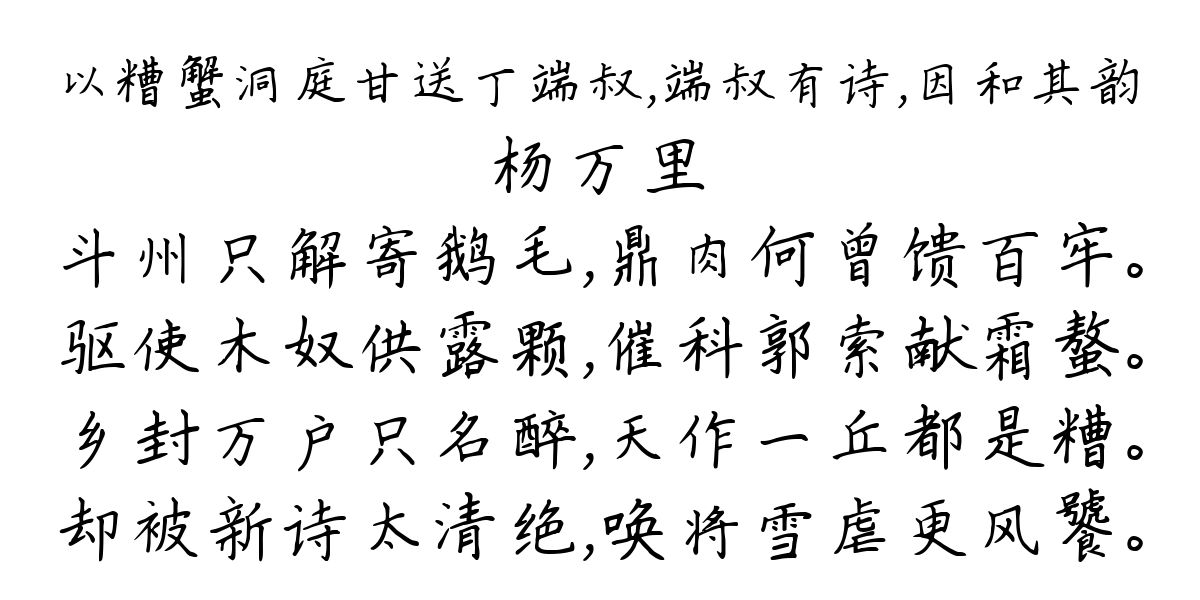 以糟蟹洞庭甘送丁端叔,端叔有诗,因和其韵
杨万里
斗州只解寄鹅毛,鼎肉何曾馈百牢。
驱使木奴供露颗,催科郭索献霜螯。
乡封万户只名醉,天作一丘都是糟。
却被新诗太清绝,唤将雪虐更风饕。